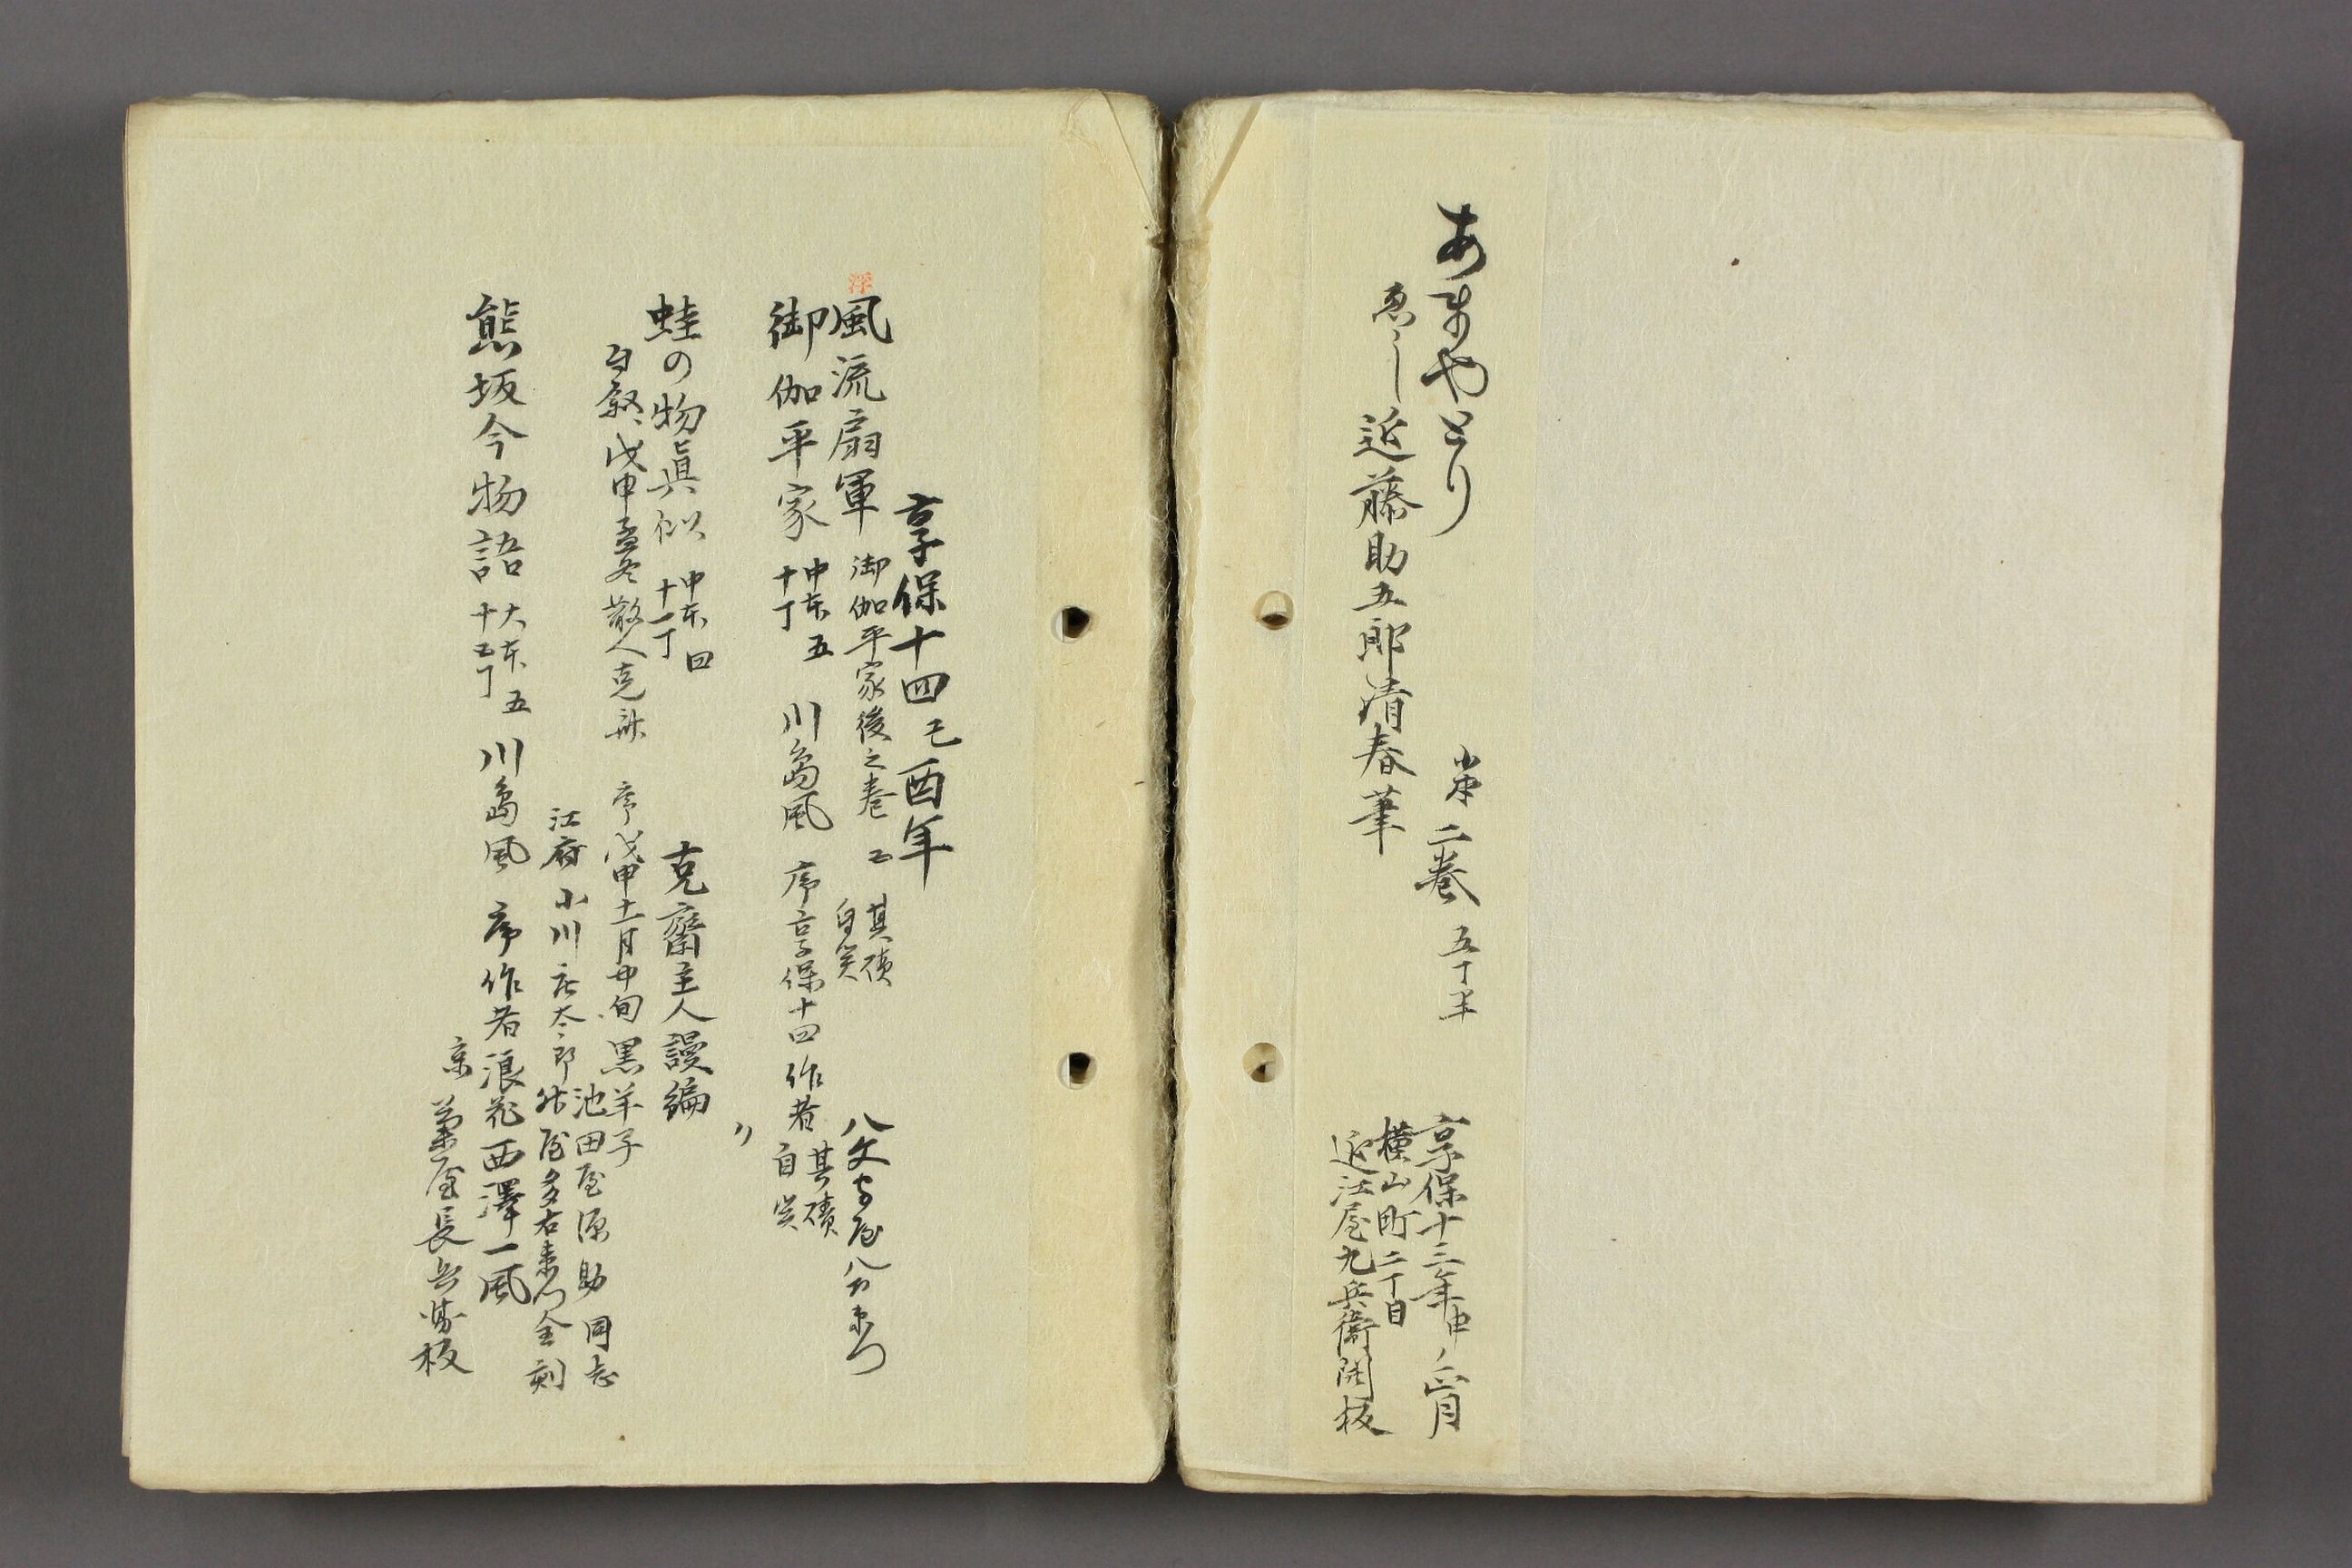 あまやとり
小本二巻 五十丁
享保十三年申ノ正月
ゑし近藤助五郎清春筆
横山町二丁目
近江屋九兵衛開板
享保十四己酉年
浮
風流扇軍 御伽平家後之巻 五 其磧 自笑 八文字屋八左衛門
御伽平家 中本五 十丁 川島風 序享保十四 作者 其磧 自笑 〃
蛙の物真似 中本四 十一丁 克齋主人謾編
自叙戊申孟冬散人克 序戊申十一月中旬黒羊子
江府 小川 池田屋源助 同志
全刻
熊坂今物語 大本五 十五丁 川島風 序作者浪花西澤一風
京 菊屋長兵衛板